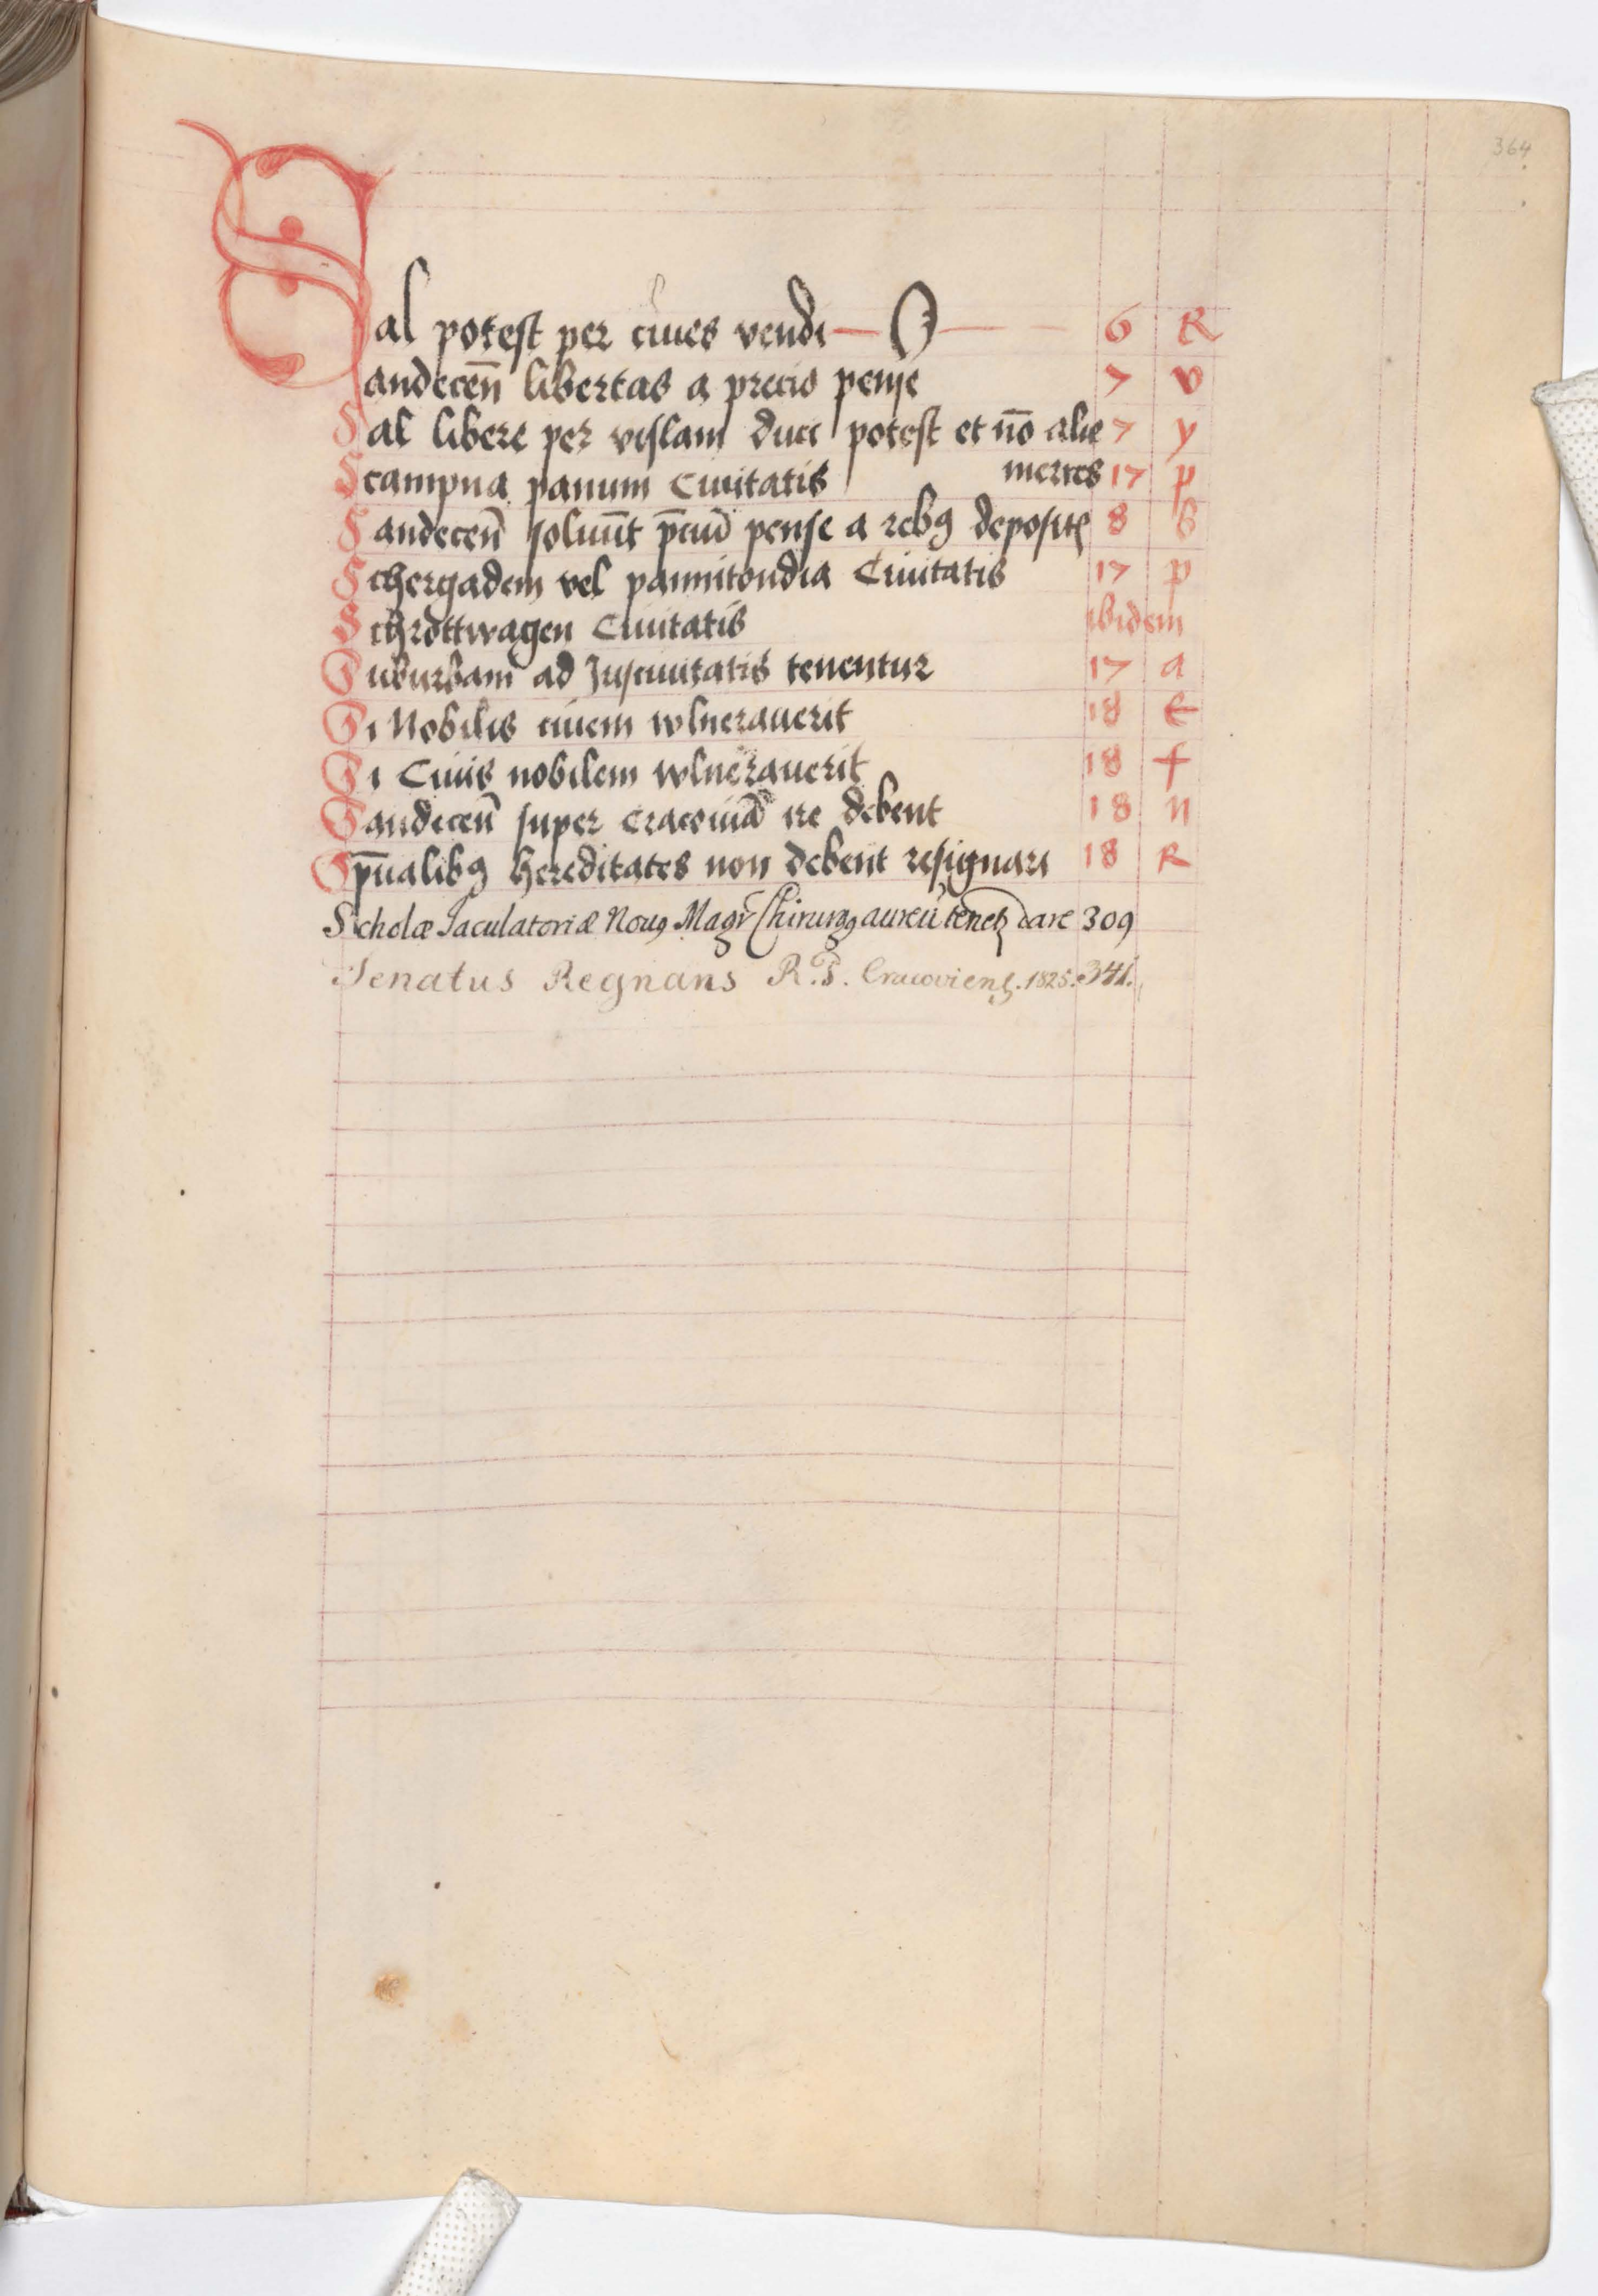 364
Sal potest per ciues vendi — O — 6 R
Sandeceñ libertas a precio pense 7 v
Sal libere per vislam duci potest et nõ alie 7 y
Scampna panum Ciuitatis merces 17 p
Sandeceñ soluũt p̄ciũ pense a rebꝯ depositꝭ 8 b
Schergadem vel pannitondia Ciuitatis 17 p
Schrottwagen Ciuitatis ibidem
Suburbani ad Juscivitatis tenentur 17 a
Si Nobilis ciuem wlnerauerit 18 e
Si Ciuis nobilem wlnerauerit 18 f
Sandeceñ super Cracouiã ire debent 18 n
Sp̄ualibꝯ hereditates non debent resignari 18 R
Scholæ Jaculatoriæ Nouꝯ Magr Chirurgꝯ aureũ tenetꝫ dare 309
Senatus Regnans R.P. Cracovienꝭ. 1825. 341.